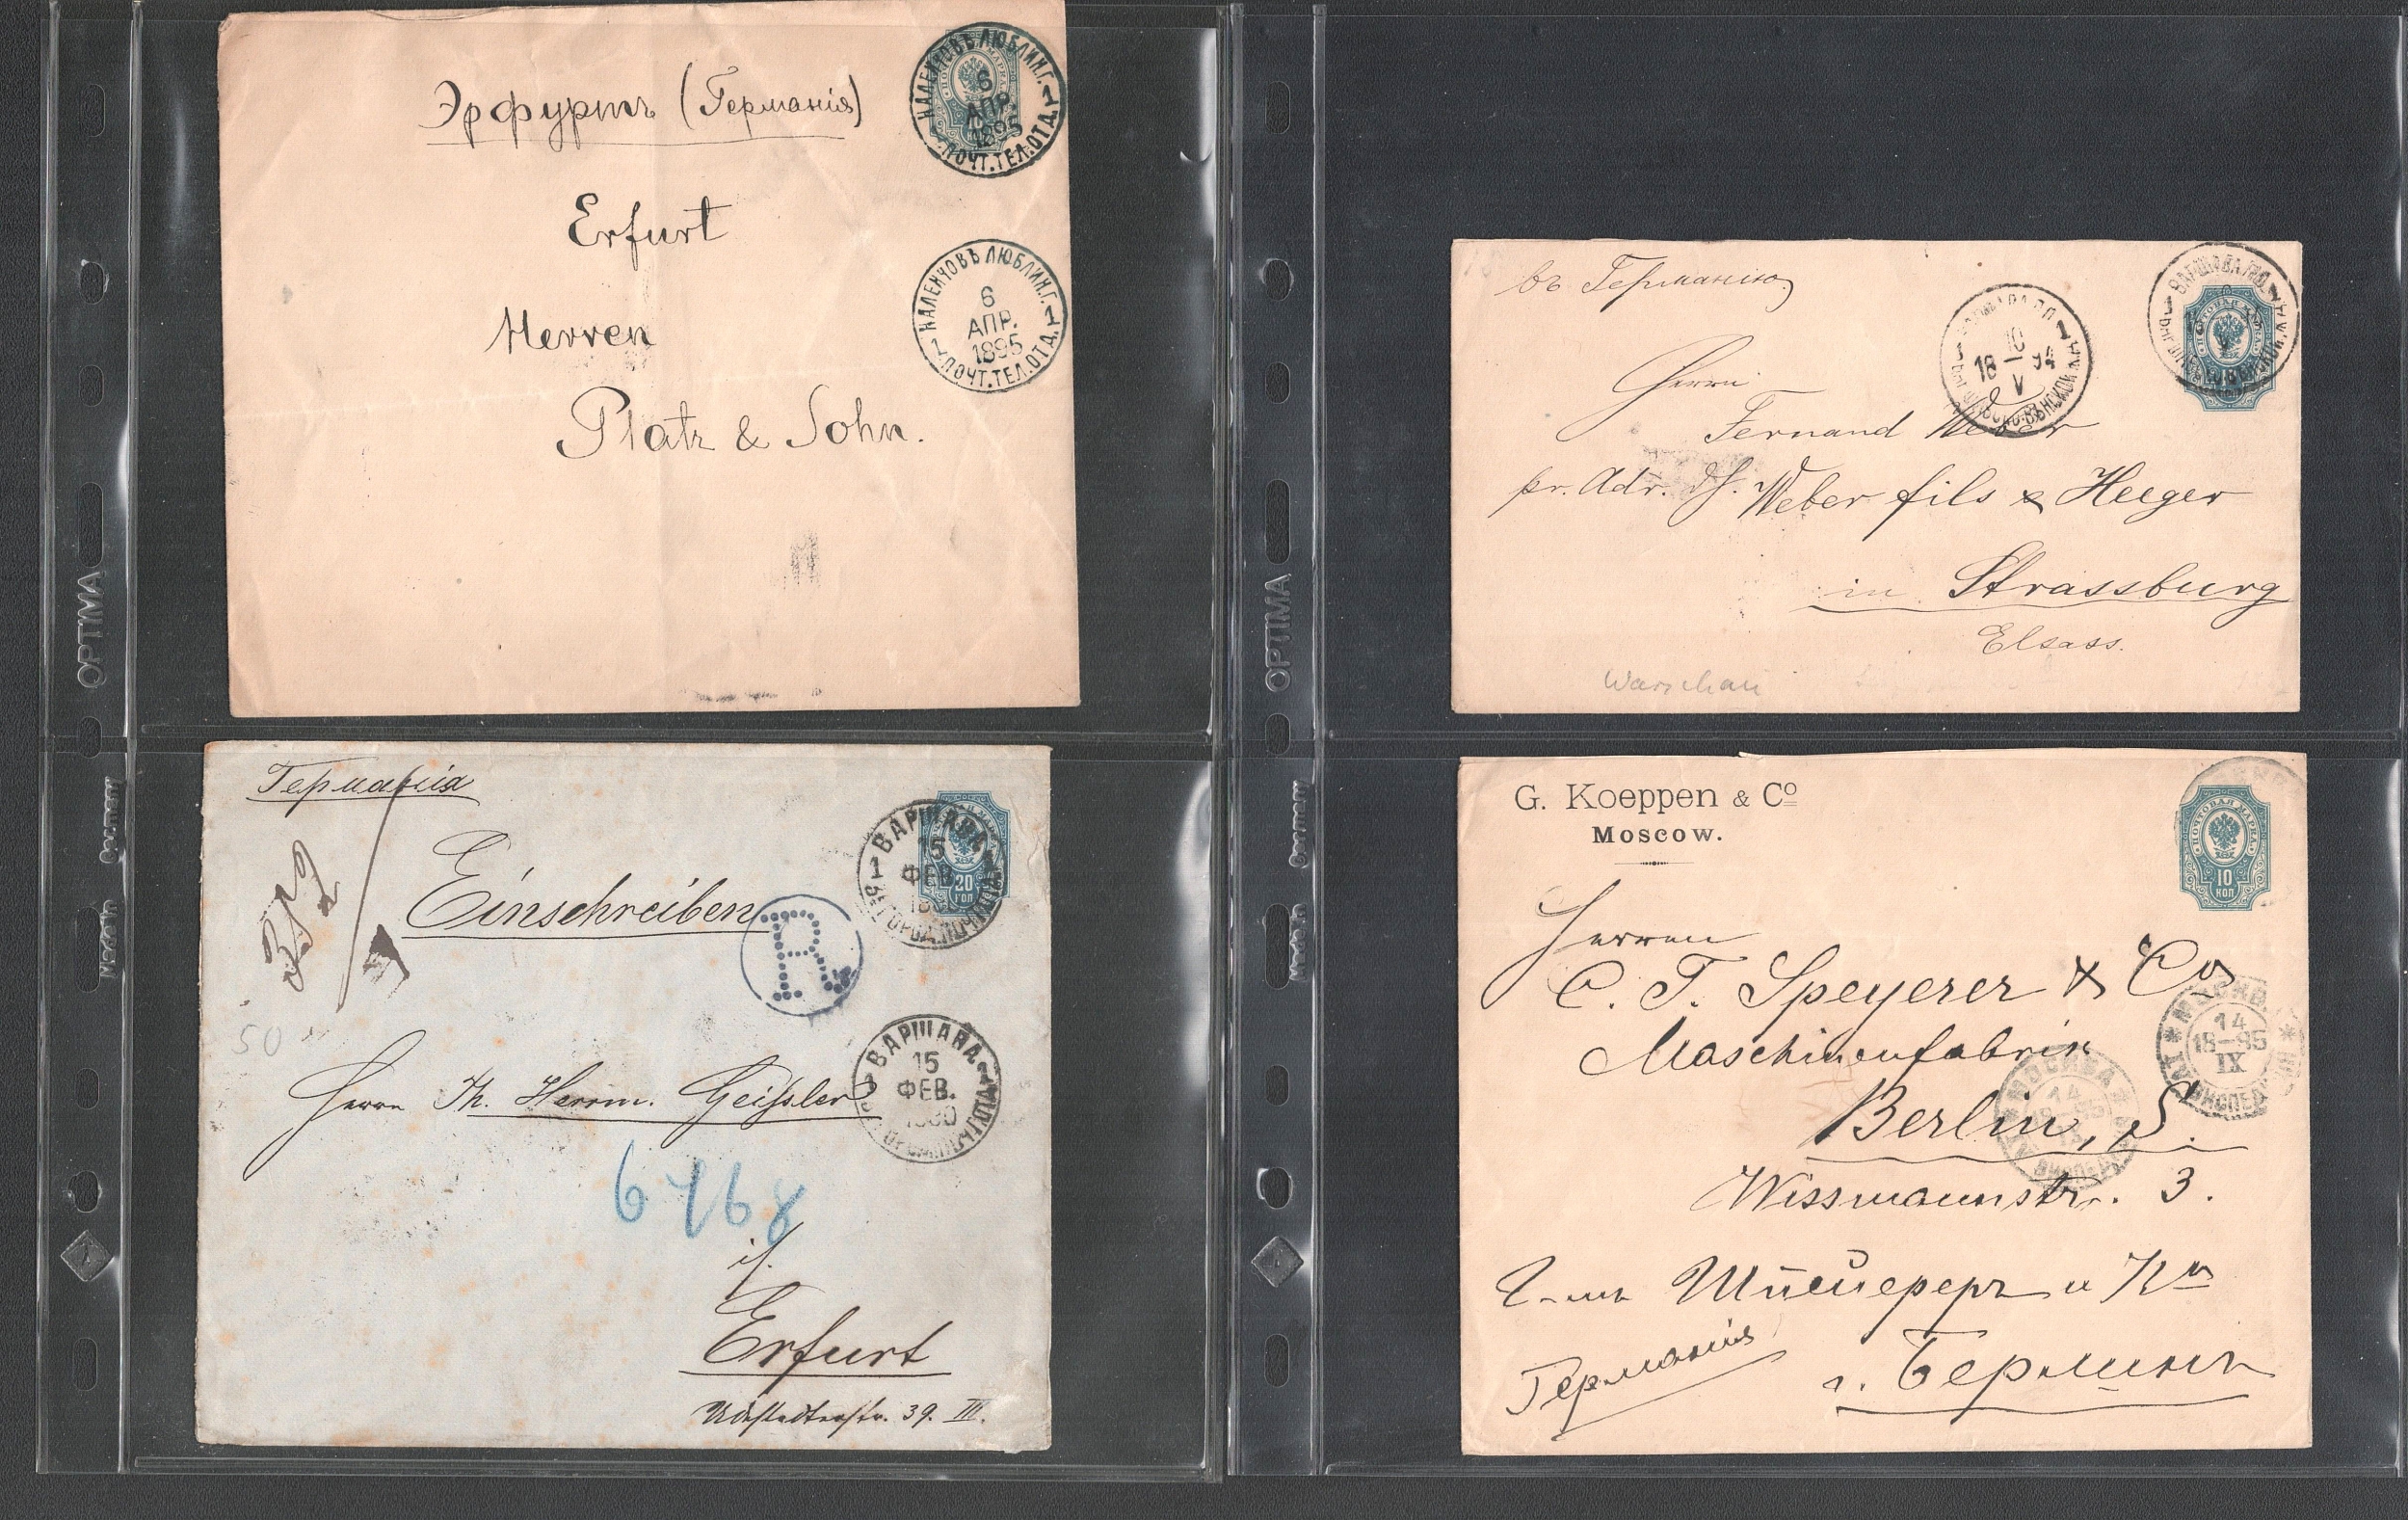 Эрфуртъ (Германія)
Erfurt
Herren
Platz & Sohn.
НАЛЕНЧОВЪ ЛЮБЛИН.Г.
6
АПР.
1895
ПОЧТ.ТЕЛ.ОТД.
НАЛЕНЧОВЪ ЛЮБЛИН.Г.
6
АПР.
1895
ПОЧТ.ТЕЛ.ОТД.
Германія
Einschreiben
R
ВАРШАВА
15
ФЕВ.
20
ВАРШАВА
15
ФЕВ.
50
Herrn Th. Herrm. Geissler
6468
i/.
Erfurt
39. III.
въ Германію
Herrn
Fernand Weber
pr. Adr. Weber fils & Heeger
in Strassburg
Elsass.
Warschau
10
18 — 94
V
G. Koeppen & Co
Moscow.
ПОЧТОВАЯ МАРКА
10
КОП
Herren
C. F. Speyerer & Co
Maschinenfabrik
Berlin, S.
Wissmannstr. 3.
Г-мъ Шпейереръ и Ко
Германія
г. Берлинъ
МОСКВА
14
18—95
IX
МОСКВА
14
OPTIMA
Made in Germany
OPTIMA
Made in Germany